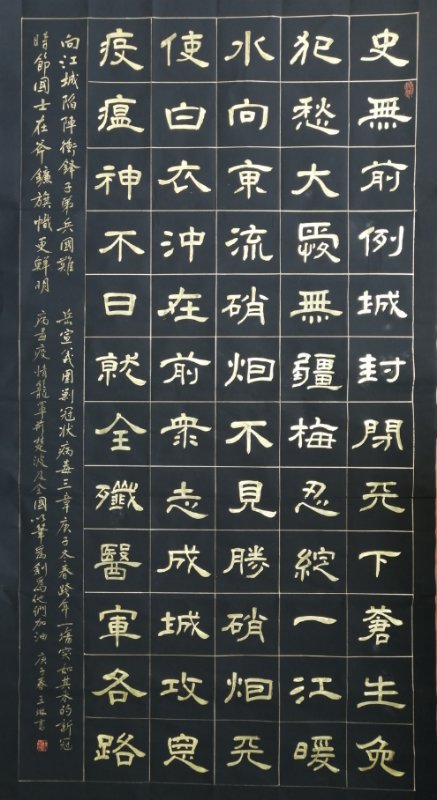 史無前例城封閉天下蒼生免
犯愁大愛無疆梅忍綻一江暖
水向東流硝烟不見勝硝烟天
使白衣沖在前眾志成城攻
疫瘟神不日就全殲醫軍各路
向江城陷陣衝鋒子弟兵國難 岳宣義圍剿冠狀病毒三章庚子冬春跨年一場突如其來的新冠
時節國士在斧鐮旗幟更鮮明 病毒疫情籠罩荊楚波及全國以筆為劍為他們加油 庚子春 書